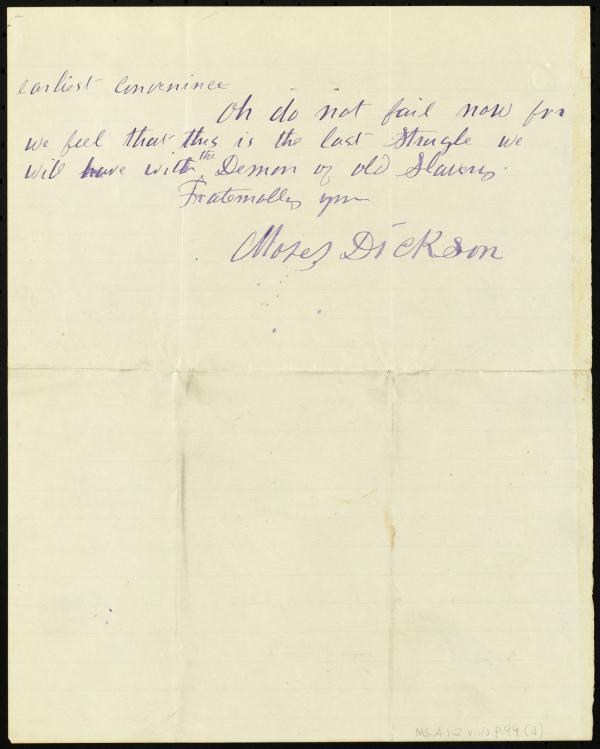 earliest convenince
Oh do not fail now for
we feel that this is the last Strugle we
will have with the Demon of old Slavery.
Fraternally your
Moses Dickson
MS.A.1.2 v.40 p.99 (a)